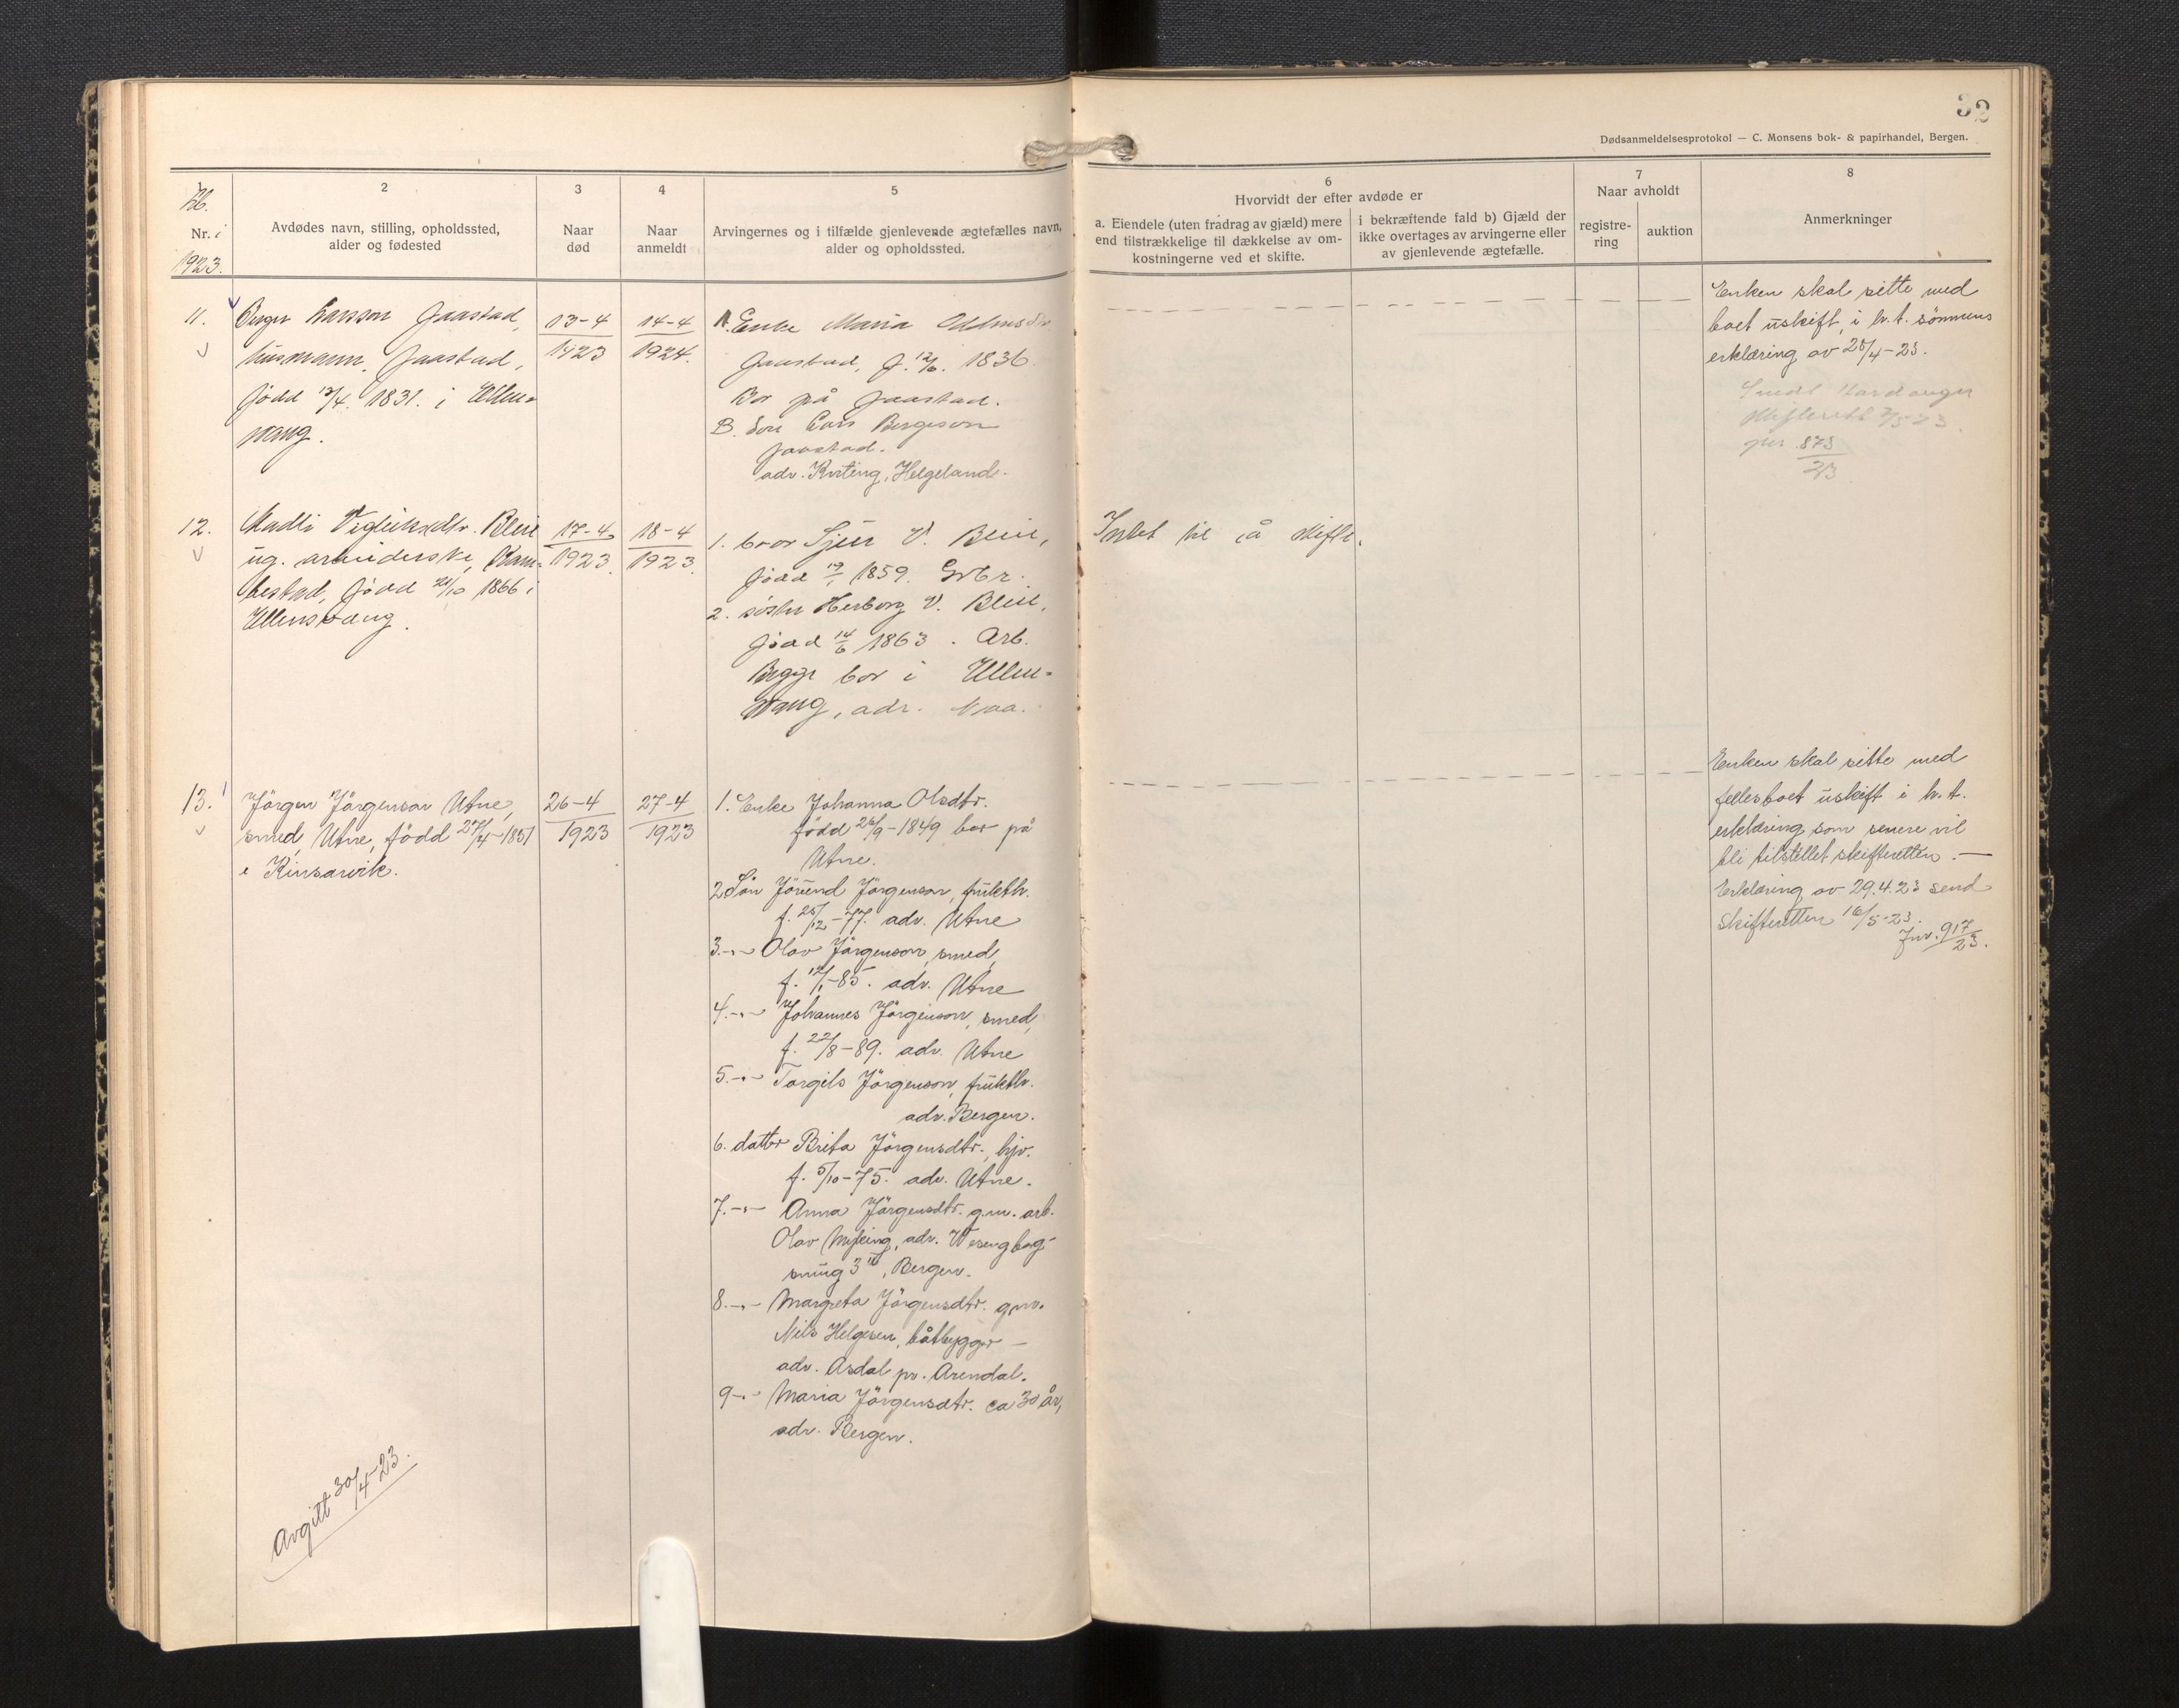 32
Dødsanmeldelsesprotokol — C. Monsens bok- & papirhandel, Bergen.
1
Nr. i
1923.
2
Avdødes navn, stilling, opholdssted,
alder og fødested
3
Naar
død
4
Naar
anmeldt
5
Arvingernes og i tilfælde gjenlevende ægtefælles navn,
alder og opholdssted.
6
Hvorvidt der efter avdøde er
a. Eiendele (uten fradrag av gjæld) mere
end tilstrækkelige til dækkelse av om-
kostningerne ved et skifte.
i bekræftende fald b) Gjæld der
ikke overtages av arvingerne eller
av gjenlevende ægtefælle.
7
Naar avholdt
registre-
ring
auktion
8
Anmerkninger
11.
Larsson Jaastad,
husmann, Jaastad,
född 13/4 1831. i Ullens-
vang.
13-4
1923
14-4
1924.
A. Enke Maria
Jaastad, f. 1836
Bor på Jaastad.
B. Son Lars Bergeson
Jaastad.
adr. Helgeland.
Enken skal sitte med
boet uskift, i h.t. sönnens
erklæring av 25/4-23.
Hardanger
873
23
12.
Bleie
ug. arbeiderske, Kam-
bestad, född 1866 i
Ullensvang.
17-4
1923
18-4
1923
1. bror Sjur V. Bleie,
född 1859. Grbr.
2. söster Herborg V. Bleie,
född 14/6 1863. Arb.
Begge bor i Ullens-
vang, adr. Naa.
Intet til å skifte.
13.
Jörgen Jörgenson Utne,
smed, Utne, född 27/4-1851
i Kinsarvik.
26-4
1923
27-4
1923
1. Enke Johanna Olsdtr.
född 26/9-1849 bor på
Utne.
2. Sön Jörund Jörgenson, frukth.
f. 25/12-77. adr. Utne
3. -"- Olav Jörgenson, smed,
f. 12/1-85. adr. Utne
4. -"- Johannes Jörgenson, smed,
f. 22/8-89. adr. Utne
5. -"- Torgils Jörgenson, frukth.
adr. Bergen.
6. datter Brita Jörgensdtr., hjv.
f. 5/10-75. adr. Utne.
7. -"- Anna Jörgensdtr. g.m. arb.
Olav adr.
smug 3, Bergen.
8. -"- Margreta Jörgensdtr. g.m.
Nils Helgesen, båtbygger —
adr. Asdal pr. Arendal.
9 -"- Maria Jörgensdtr. ca 30 år,
adr. Bergen.
Enken skal sitte med
fellesboet uskift i h.t.
erklæring som senere vil
bli tilstillet skifteretten. —
Erklæring av 29.4.23 send
skifteretten 16/5-23.
Jnr. 917
23.
Avgitt 30/4-23.